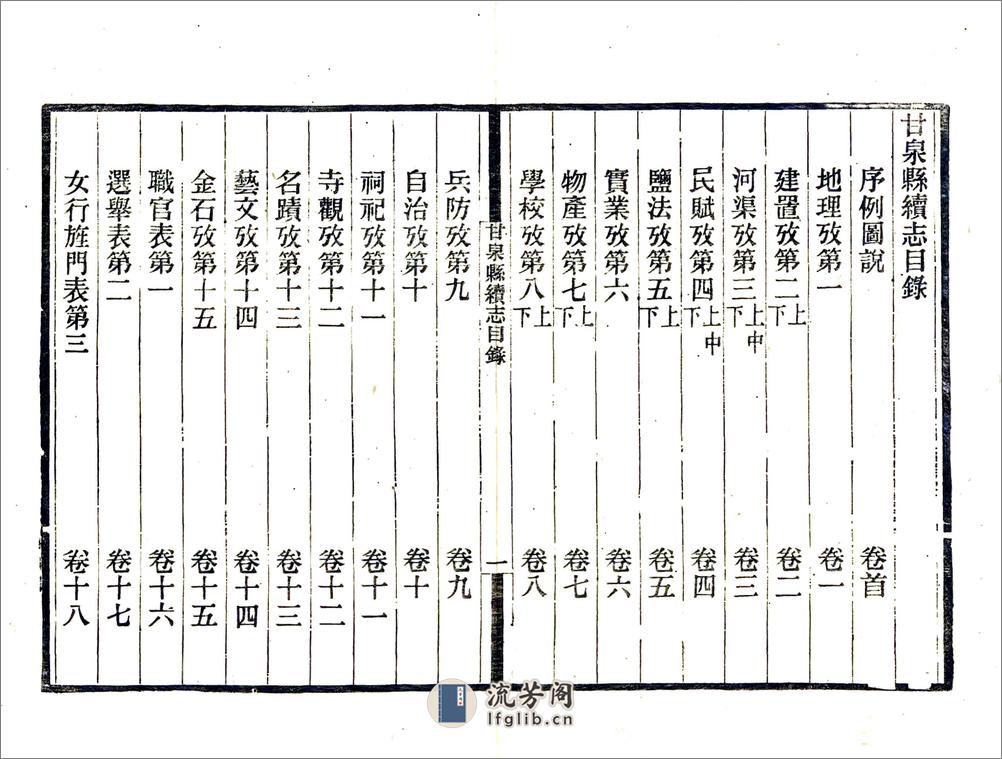 甘泉縣續志目錄
序例圖說 卷首
地理攷第一 卷一
建置攷第二上下 卷二
河渠攷第三上中下 卷三
民賦攷第四上中下 卷四
鹽法攷第五上下 卷五
實業攷第六 卷六
物產攷第七上下 卷七
學校攷第八上下 卷八
甘泉縣續志目錄 一
兵防攷第九 卷九
自治攷第十 卷十
祠祀攷第十一 卷十一
寺觀攷第十二 卷十二
名蹟攷第十三 卷十三
藝文攷第十四 卷十四
金石攷第十五 卷十五
職官表第一 卷十六
選舉表第二 卷十七
女行旌門表第三 卷十八
流芳阁
lfglib.cn